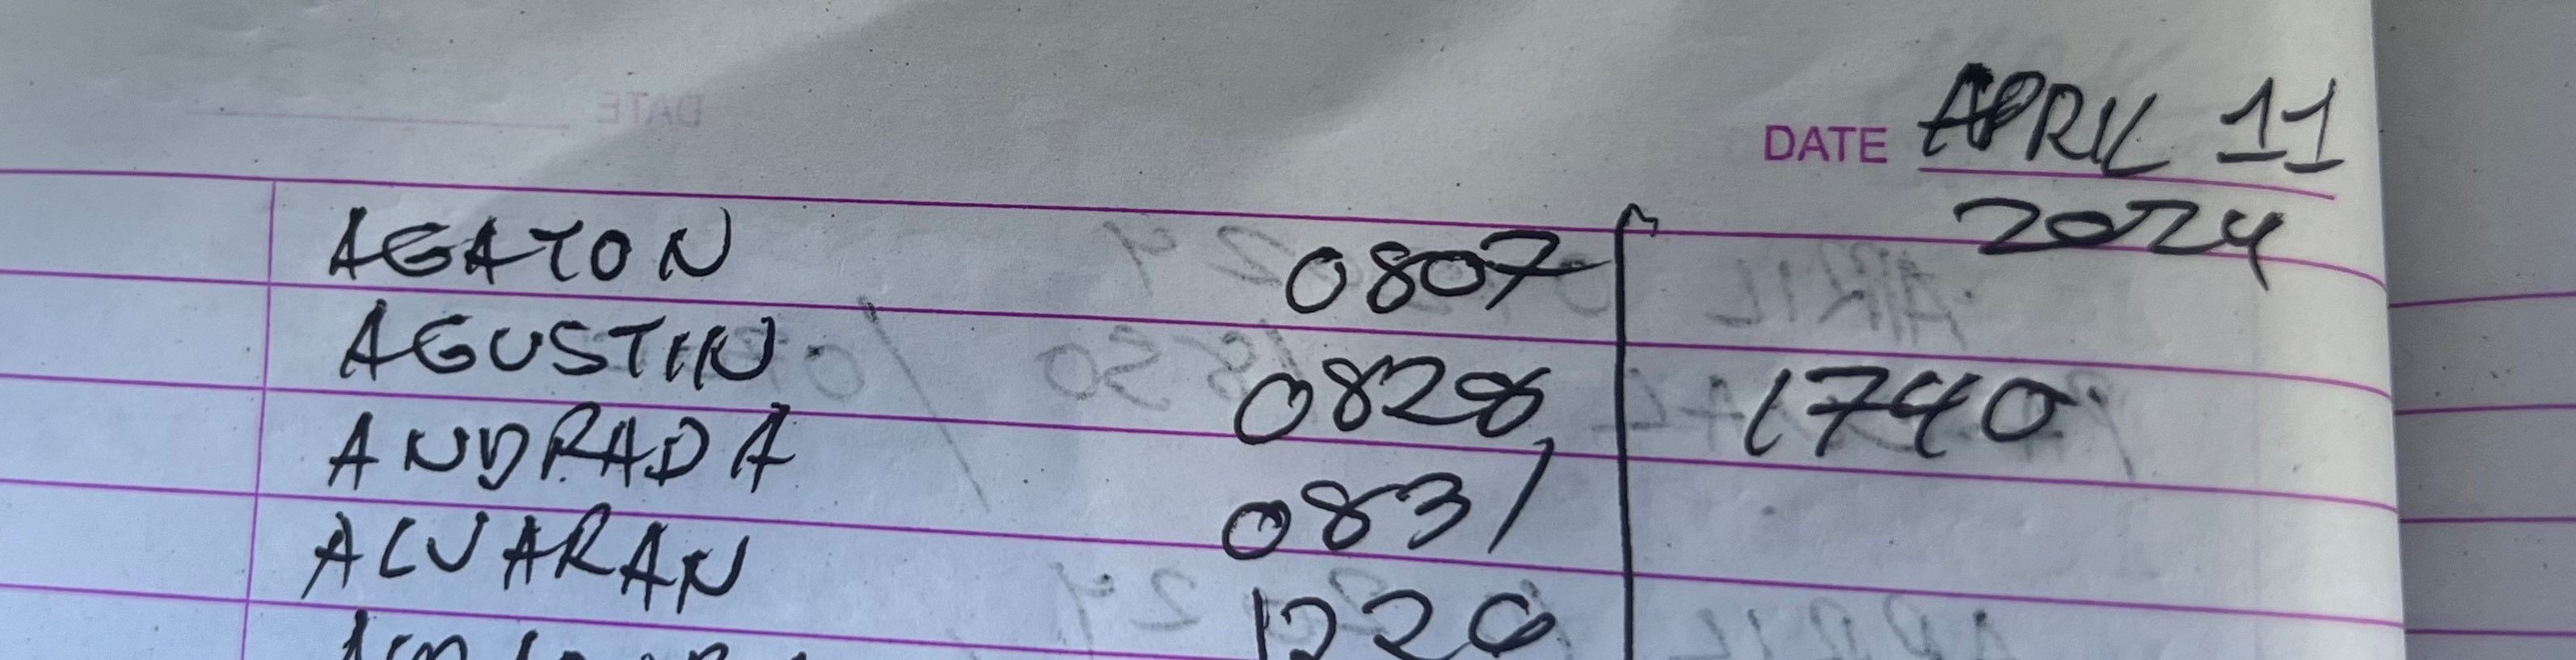 DATE APRIL 11
2024
AGATON 0807
AGUSTIN 0828 1740
ANDRADA 0831
ALVARAN 1220